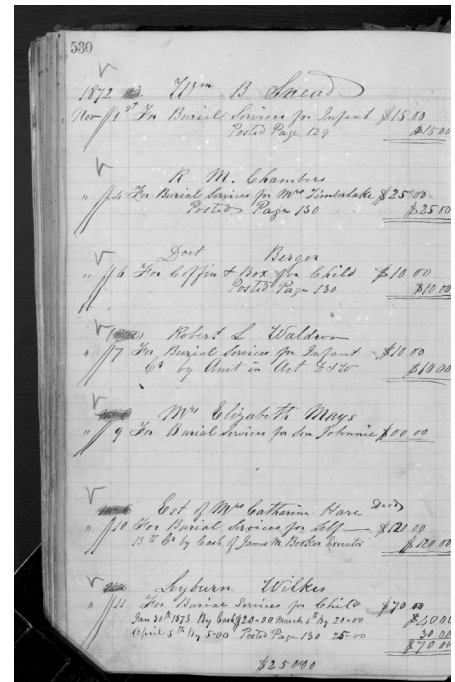 530
1872 Wm B Snead
Nov 1st For Burial Services for Infant $15.00
Posted Page 129 $15.00
R. M. Chambers
" 4 For Burial Services for Mrs Timberlake $25.00
Posted Page 130 $25.00
Doct Berger
" 6 For Coffin & Box for Child $10.00
Posted Page 130 $10.00
Robert L Waldron
" 7 For Burial Services for Infant $10.00
Cr by Amt in Act D & W $10.00
Mrs Elizabeth Mays
" 9 For Burial Services for son Johnnie $00.00
Est of Mrs Catharine Hare Decd
" 10 For Burial Services for Self $120.00
13th Cr by Cash of James M. Booker Executor $120.00
Leyburn Wilkes
" 11 For Burial Services for Child $70.00
Jan 30th 1873 By Cash $20.00 March 8th By 20.00 $40.00
April 5th By 5.00 Posted Page 130 25.00 30.00
$70.00
$250.00